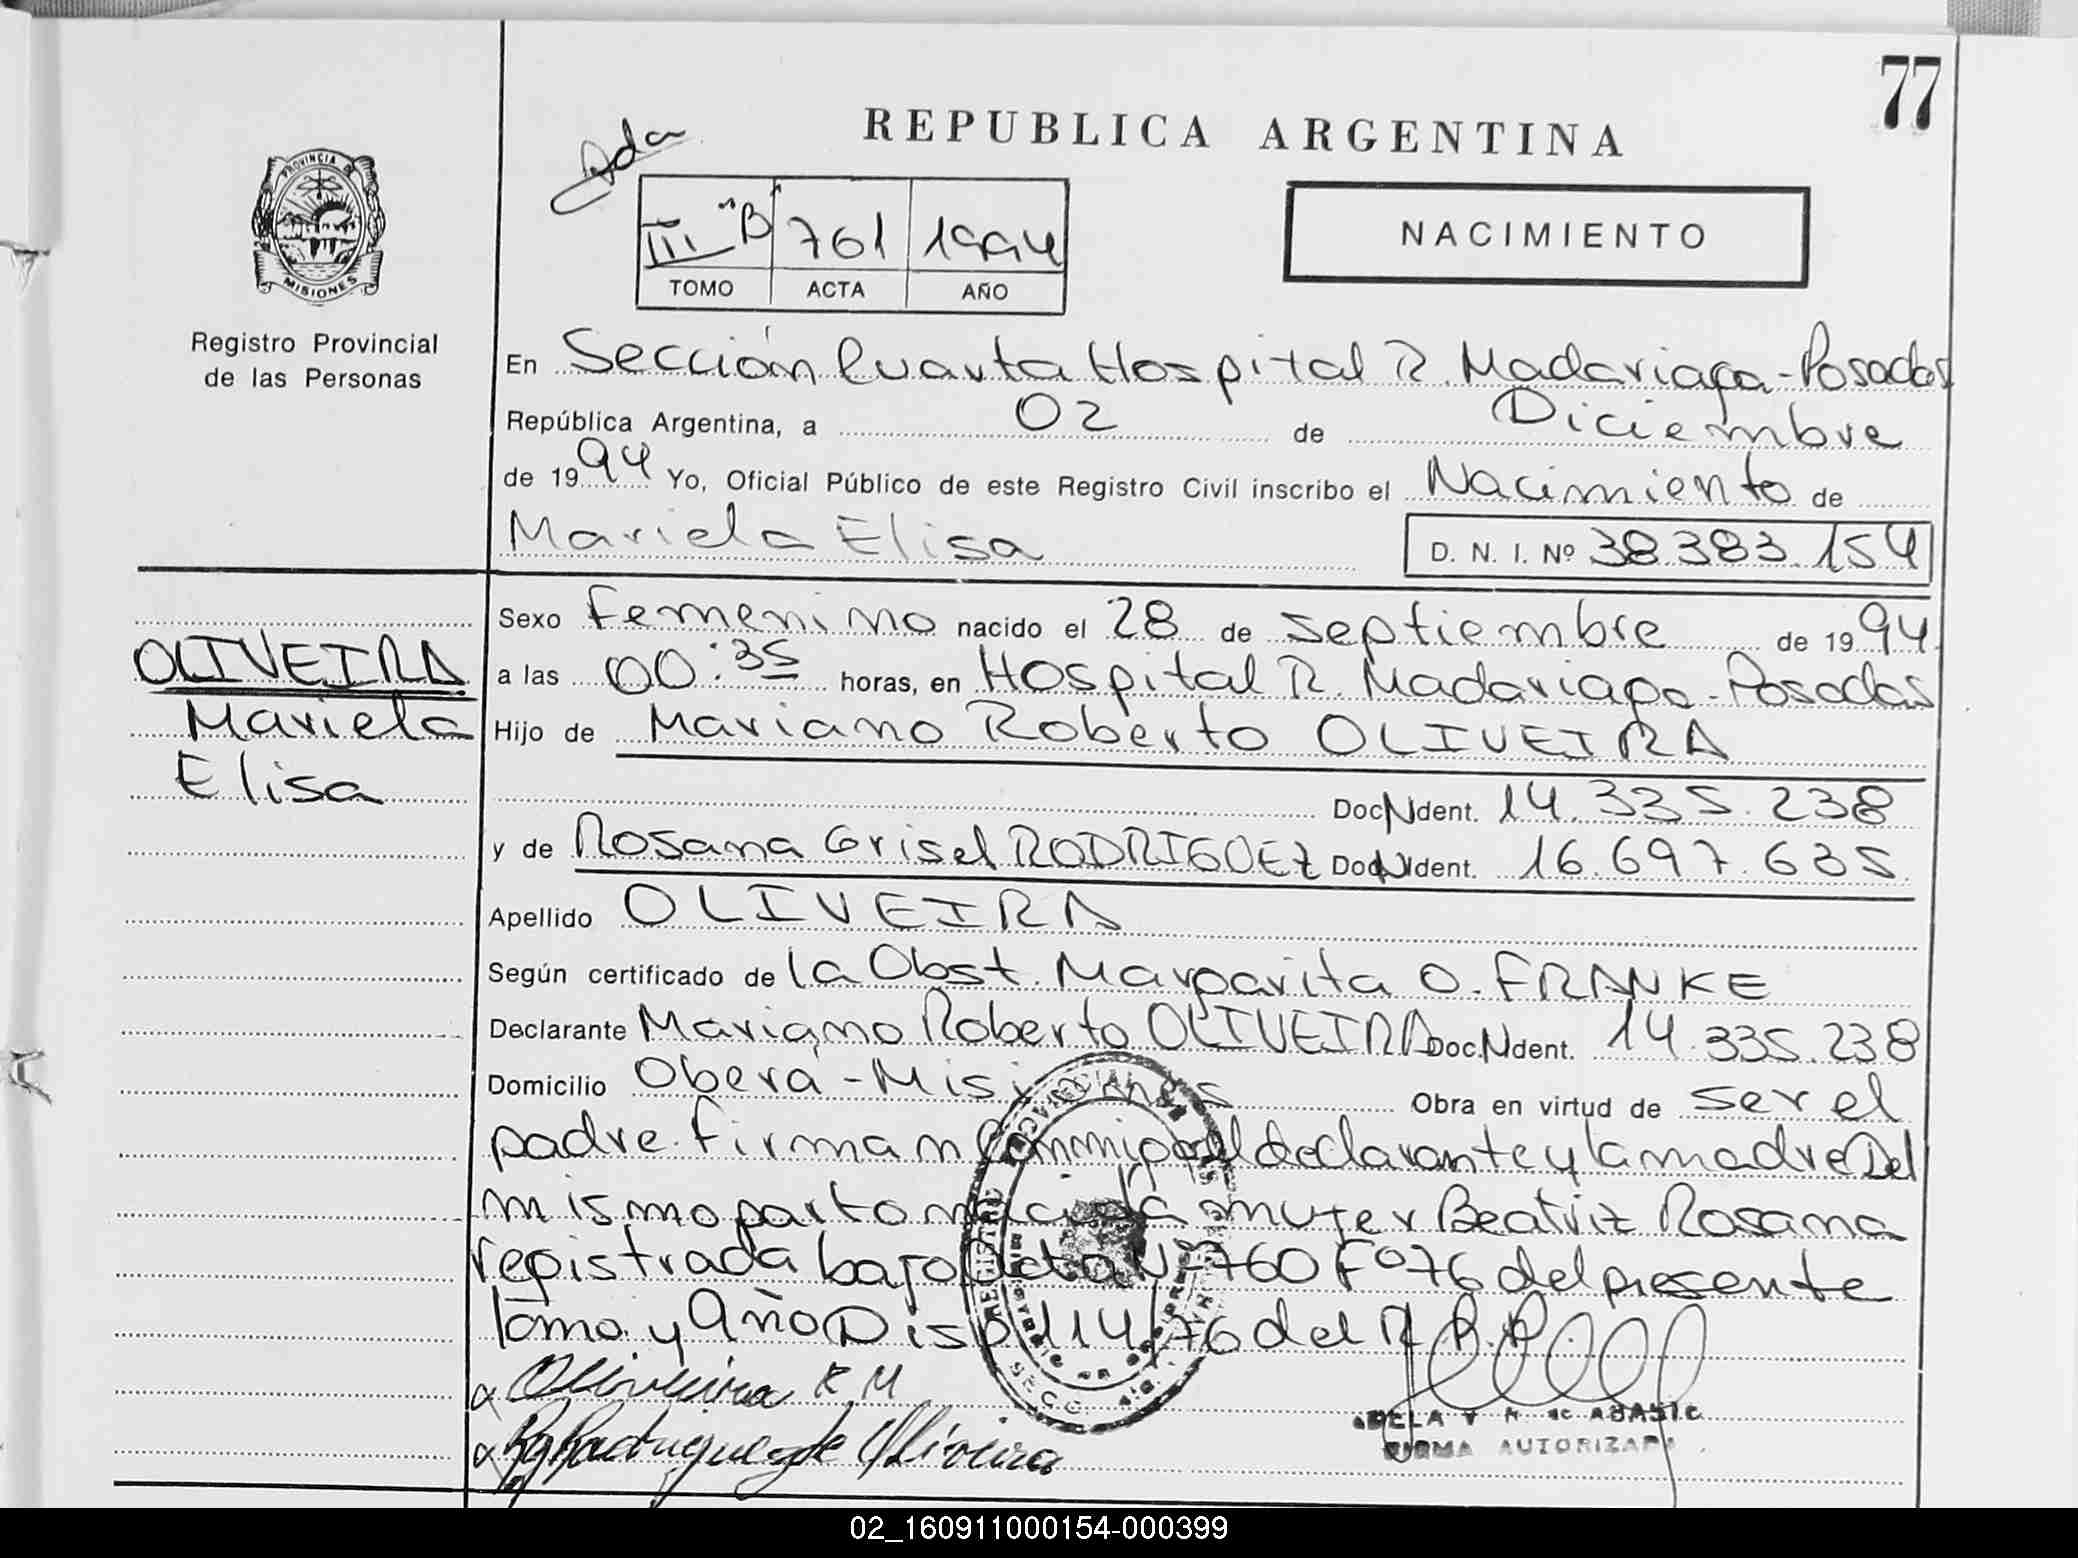 77
REPUBLICA ARGENTINA
Ada
PROVINCIA DE
MISIONES
Registro Provincial
de las Personas
III "B" 761 1994
TOMO ACTA AÑO
NACIMIENTO
En Sección Cuarta Hospital R. Madariaga - Posadas
República Argentina, a 02 de Diciembre
de 1994 Yo, Oficial Público de este Registro Civil inscribo el Nacimiento de
Mariela Elisa D. N. I. Nº 38.383.154
OLIVEIRA
Mariela
Elisa
Sexo Femenino nacido el 28 de septiembre de 1994
a las 00:35 horas, en Hospital R. Madariaga - Posadas
Hijo de Mariano Roberto OLIVEIRA
Doc. N Ident. 14.335.238
y de Rosana Grisel RODRIGUEZ Doc. N Ident. 16.697.635
Apellido OLIVEIRA
Según certificado de la Obst. Margarita O. FRANKE
Declarante Mariano Roberto OLIVEIRA Doc. N Ident. 14.335.238
Domicilio Oberá - Misiones Obra en virtud de ser el
padre. Firman Conmigo el declarante y la madre Del
mismo parto nacida mujer Beatriz Rosana
registrada bajo Acta Nº 760 Fº 76 del presente
Tomo y Año Disp 114/76 del R. P. P.
x Oliveira R M
x Rodriguez de Oliveira
FIRMA AUTORIZADA
02_160911000154-000399